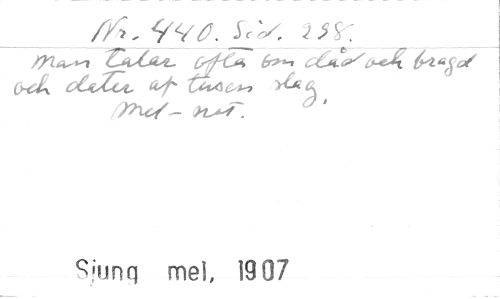 Nr. 440. Sid. 298.
Man talar ofta om dåd och bragd
och dater af tusen slag.
Mel-not.
Sjung mel, 1907